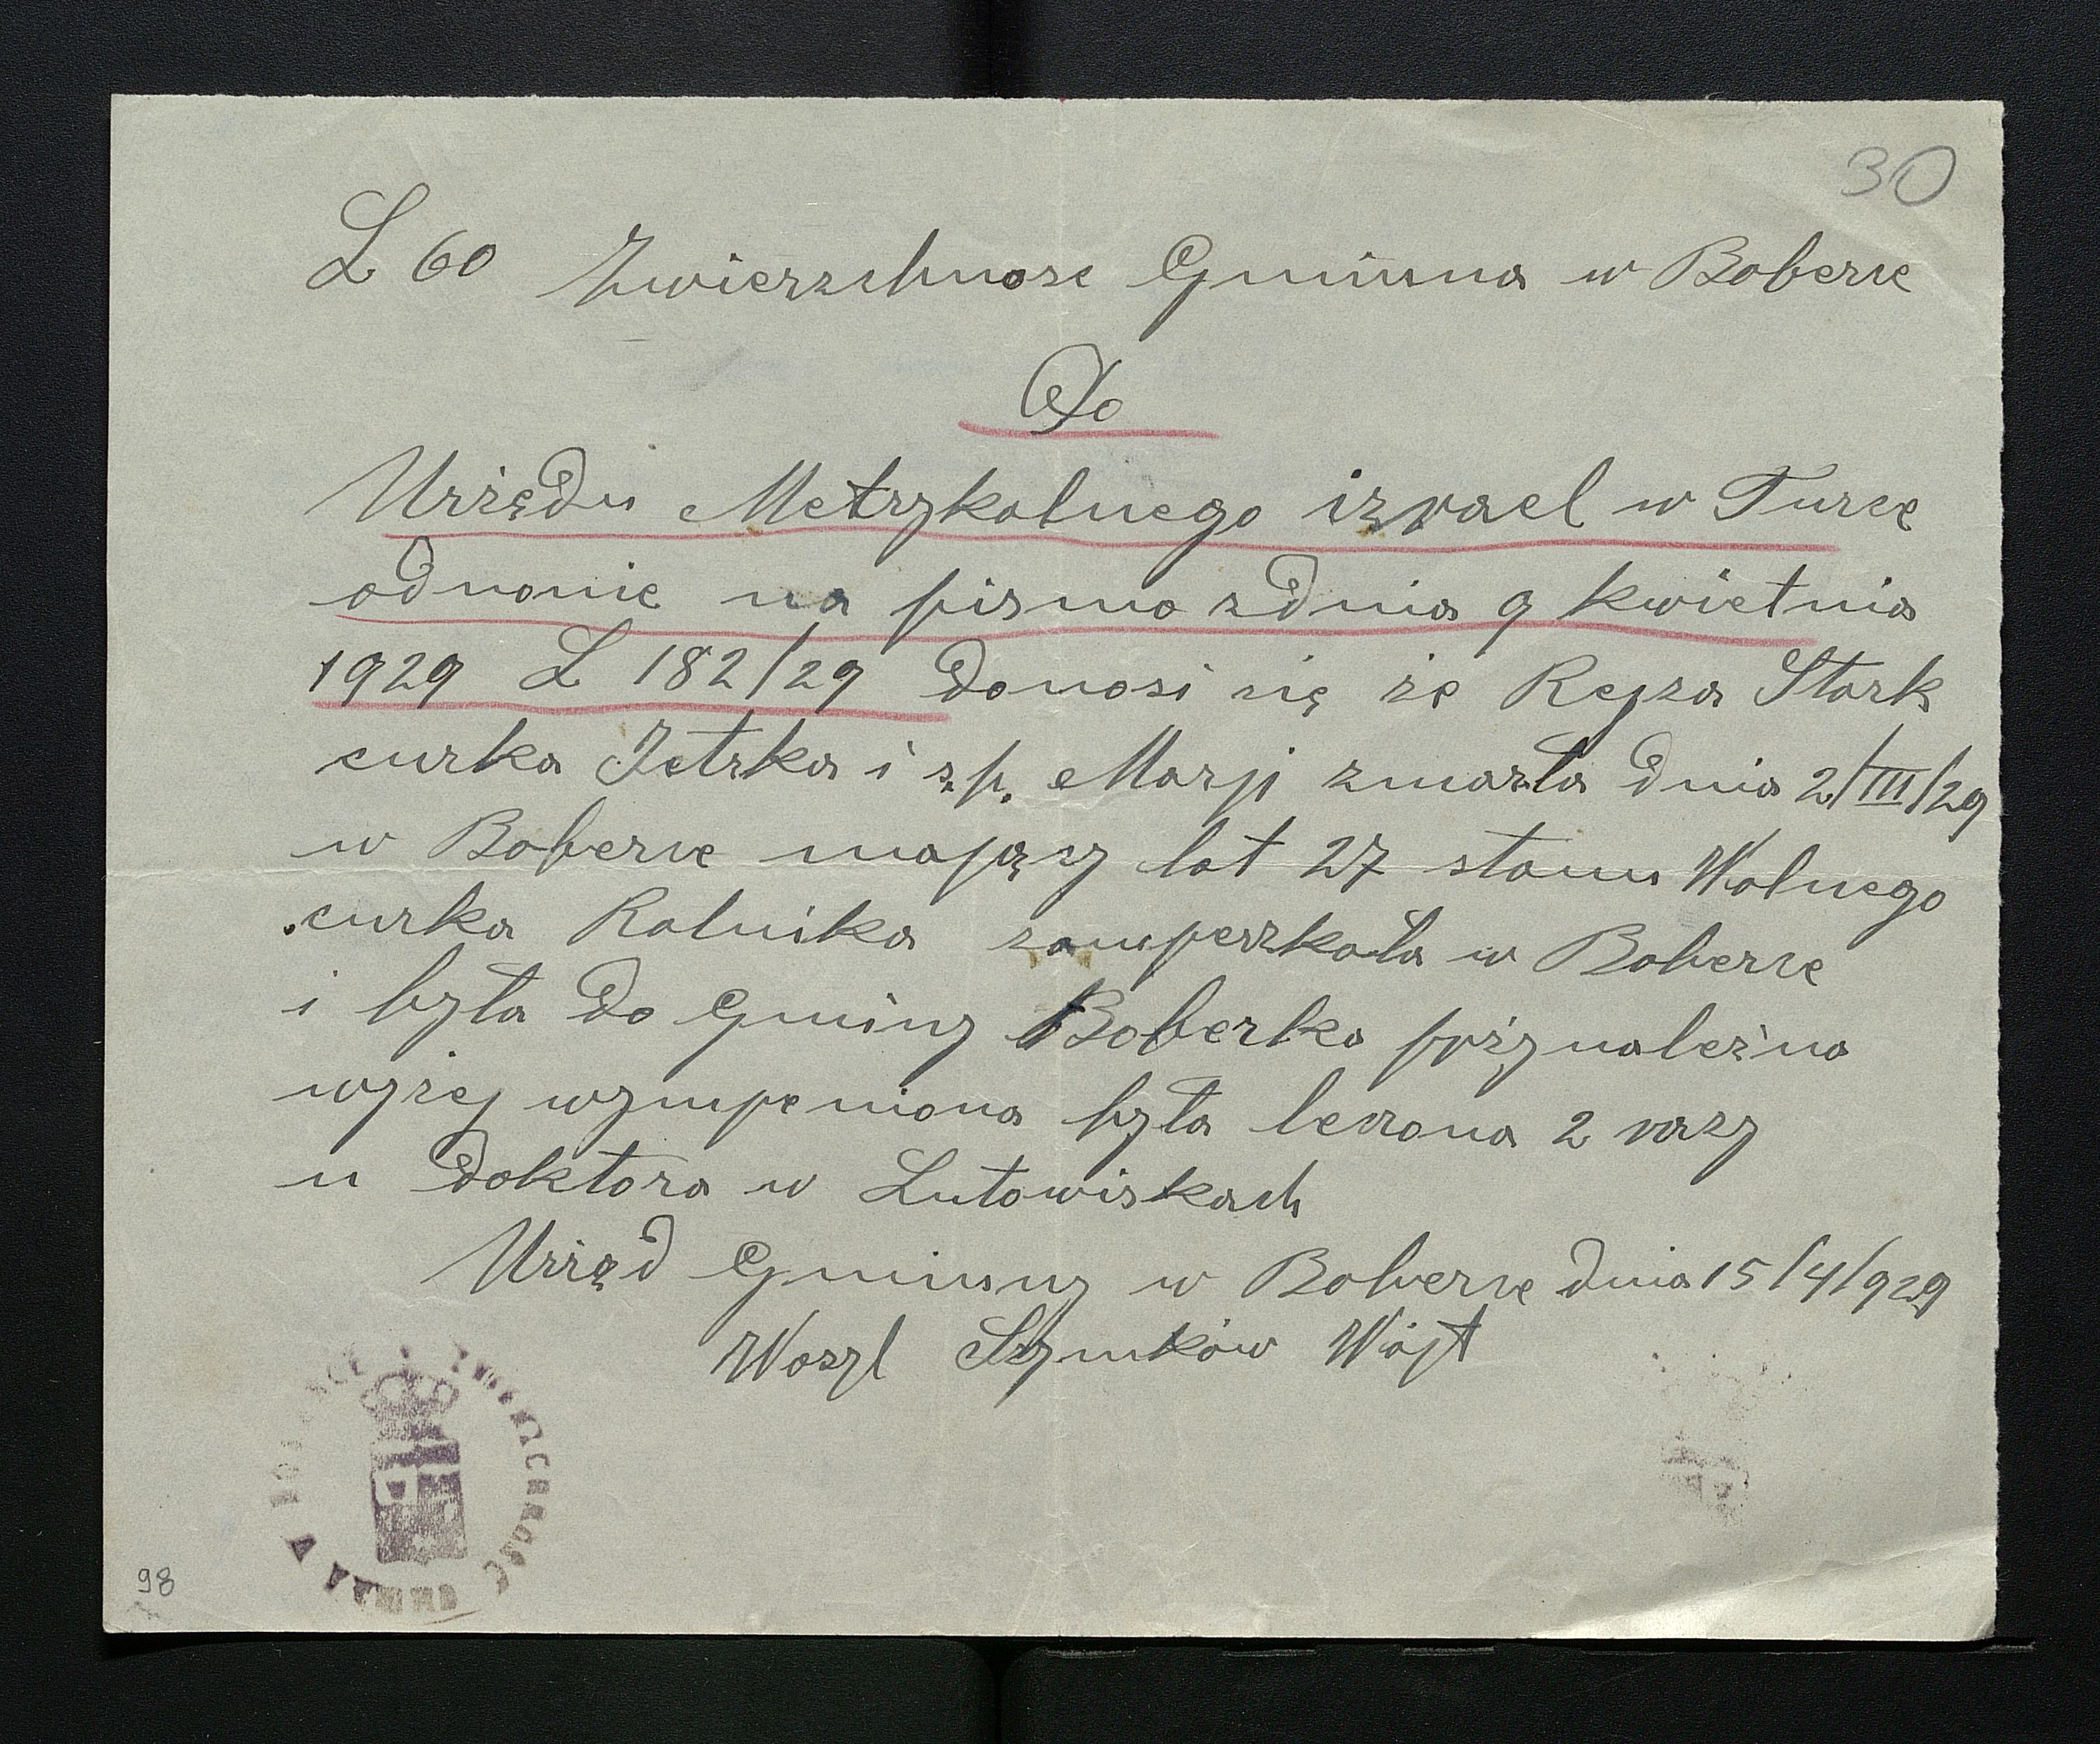 30
L 60 Zwierzchnosc Gminna w Boberce
Do
Urżędu Metrykalnego izrael w Turce
odnonie na pismo zdnia 9 kwietnia
1929 L 182/29 donosi się że Rejza Stark
curka Icka i z p. Marji zmarła dnia 2/III/29
w Boberce mająsy lat 27 stanu Wolnego
curka Rolnika zamjeszkała w Boberce
i była do Gminy Boberka pżynależna
wyżej wymjeniona była leczona 2 razy
u Doktora w Lutowiskach
Urząd Gminny w Boberce dnia 15/4/929
Waszl Szymków Wójt
98